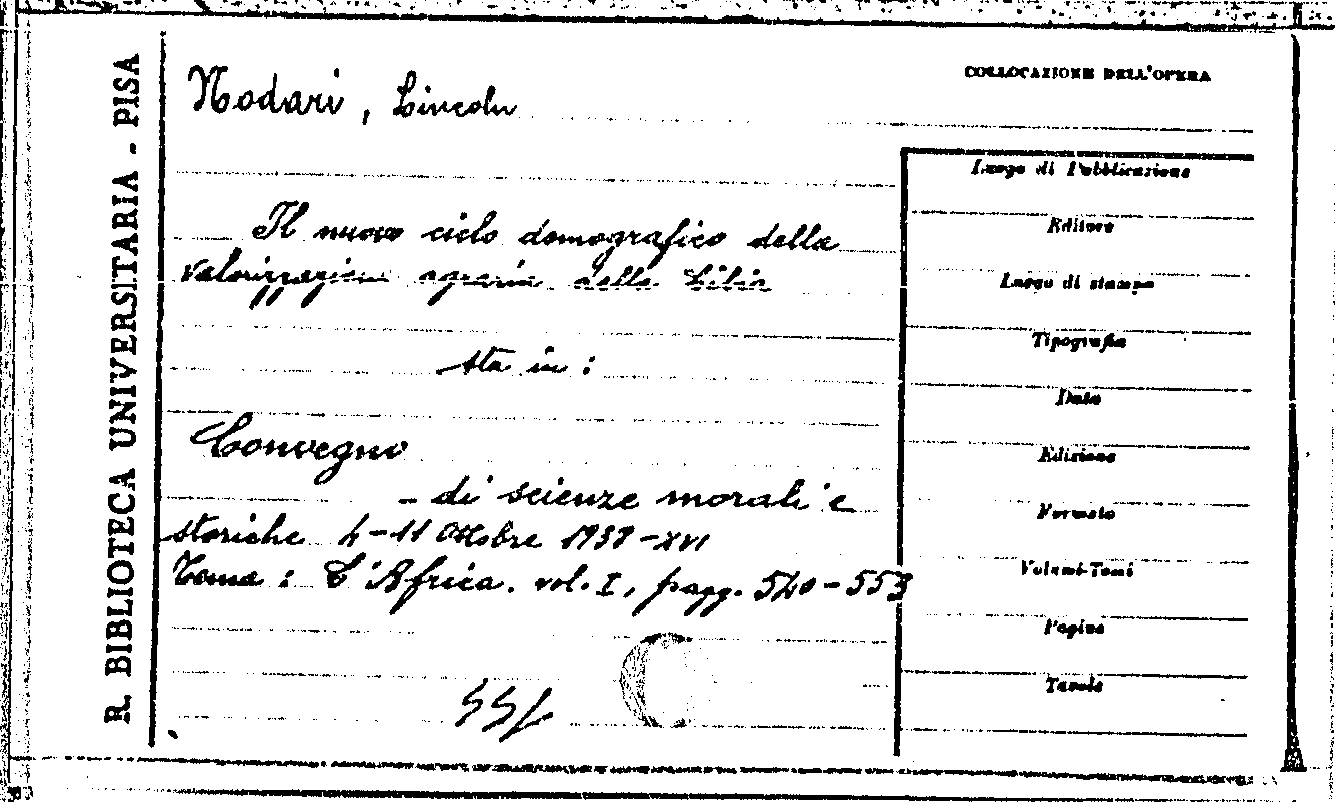 R. BIBLIOTECA UNIVERSITARIA - PISA
Nodari, Lincoln
Il nuovo ciclo demografico della
valorizzazione agraria della Libia
sta in:
Convegno
- di scienze morali e
storiche 4-11 Ottobre 1938-XVI
Tema: L'Africa. vol. I, pagg. 540-553
COLLOCAZIONE DELL'OPERA
Luogo di Pubblicazione
Editore
Luogo di stampa
Tipografia
Data
Edizione
Formato
Volumi-Tomi
Pagine
Tavole